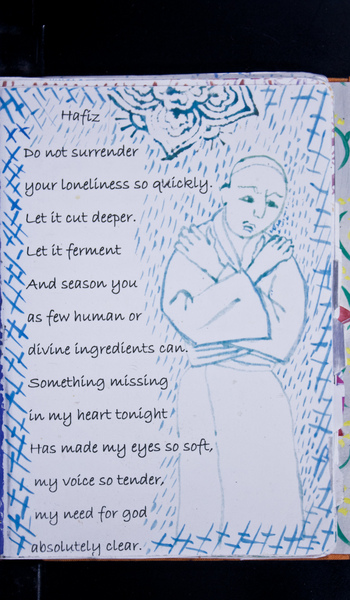 Hafiz
Do not surrender
your loneliness so quickly.
Let it cut deeper.
Let it ferment
And season you
as few human or
divine ingredients can.
Something missing
in my heart tonight
Has made my eyes so soft,
my voice so tender,
my need for god
absolutely clear.